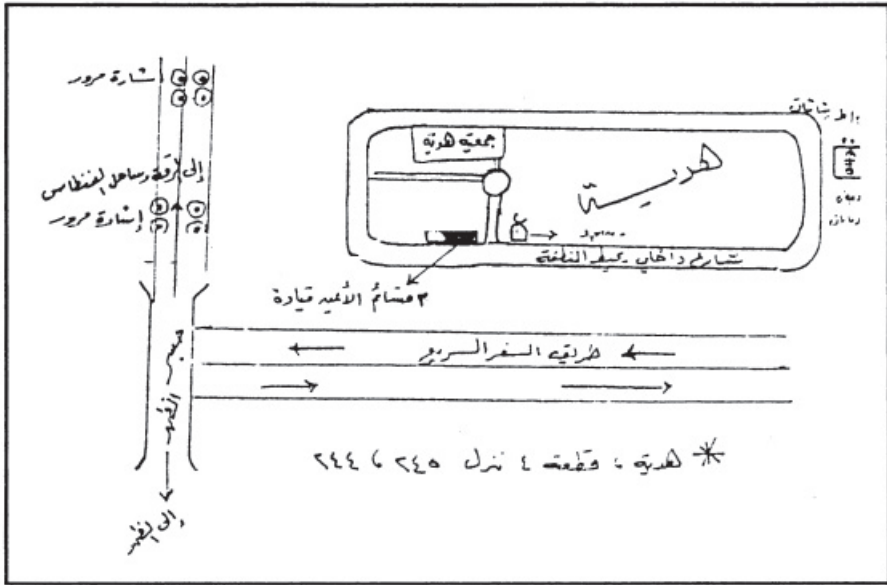 إشارة مرور
إلى الرقة وساحل الفنطاس
إشارة مرور
جمعية هدية
هدية
شارع داخلي يحيط المنطقة
٣ قسائم الأغير قيادة
طريق السفر السريع
جسر الظهر
إلى الظهر
* هدية ، قطعة ٤ منزل ٢٤٥ ، ٢٤٤